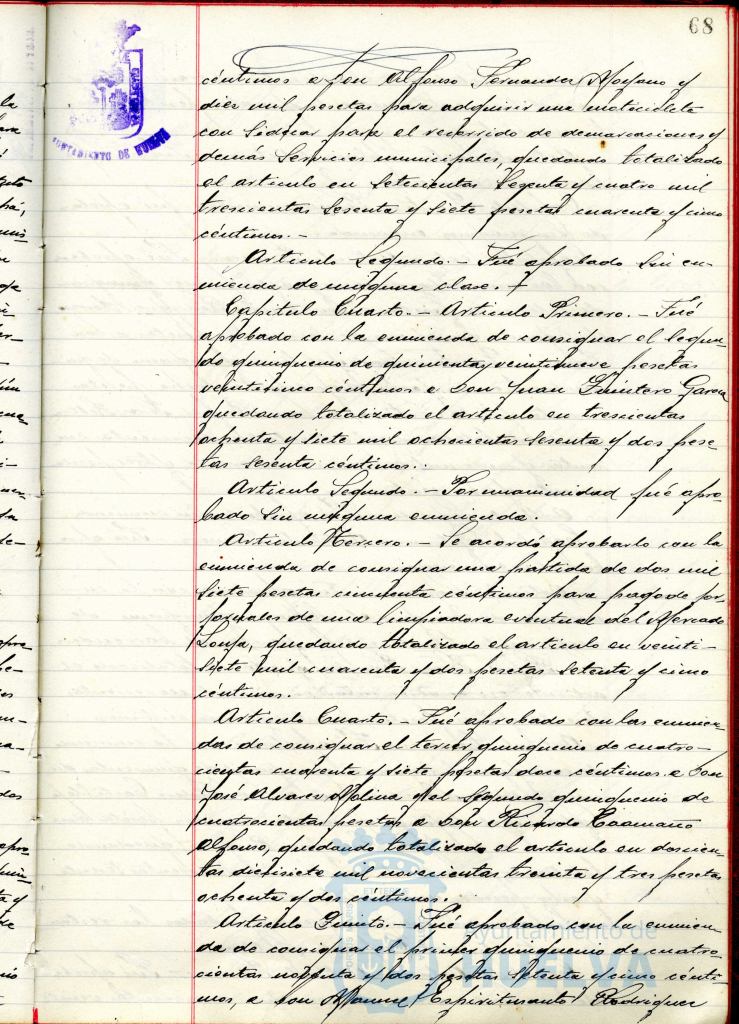 68
AYUNTAMIENTO DE HUELVA
céntimos a Don Alfonso Fernandez Moyano y
diez mil pesetas para adquirir una motocicleta
con Sidecar para el recorrido de demarcaciones y
demás Servicios municipales, quedando totalizado
el articulo en Setecientas Sesenta y cuatro mil
trescientas Sesenta y Siete pesetas cuarenta y cinco
céntimos.-
Articulo Segundo.- Fué aprobado sin en-
mienda de ninguna clase.
Capitulo Cuarto.- Articulo Primero.- Fué
aprobado con la enmienda de consignar el Segun-
do quinquenio de quinientas veintinueve pesetas
veinticinco céntimos a Don Juan Quintero Garcia
quedando totalizado el articulo en trescientas
ochenta y siete mil ochocientas sesenta y dos pese-
tas sesenta céntimos.
Articulo Segundo.- Por unanimidad fué apro-
bado sin ninguna enmienda.
Articulo Tercero.- Se acordó aprobarlo con la
enmienda de consignar una partida de dos mil
siete pesetas cincuenta céntimos para pago de jor-
jornales de una limpiadora eventual del Mercado
Lonja, quedando totalizado el articulo en veinti-
siete mil cuarenta y dos pesetas setenta y cinco
céntimos.
Articulo Cuarto.- Fué aprobado con las enmien-
das de consignar el tercer quinquenio de cuatro-
cientas cuarenta y siete pesetas doce céntimos a Don
José Alvarez Molina y el Segundo quinquenio de
cuatrocientas pesetas a Don Ricardo Caamaño
Alfonso, quedando totalizado el articulo en doscien-
tas diecisiete mil novecientas treinta y tres pesetas
ochenta y dos céntimos.
Articulo Quinto.- Fué aprobado con la enmien-
da de consignar el primer quinquenio de cuatro-
cientas noventa y dos pesetas setenta y cinco cénti-
mos, a Don Manuel Espiritusanto Rodriguez
Ayuntamiento de
HUELVA